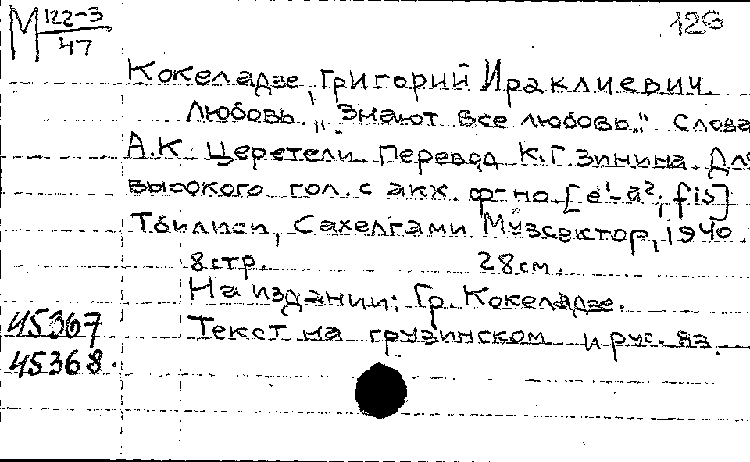 М 122-3
47
126
Кокеладзе, Григорий Ираклиевич.
Любовь. „Знают все любовь." Слова
А.К. Церетели. Перевод К.Г. Зинина. Для
высокого гол. с акк. ф-но. [e¹-a²; fis]
Тбилиси, Сахелгами Музсектор, 1940.
8 стр. 28 см.
На издании: Гр. Кокеладзе.
45367 Текст на грузинском и рус. яз.
45368.